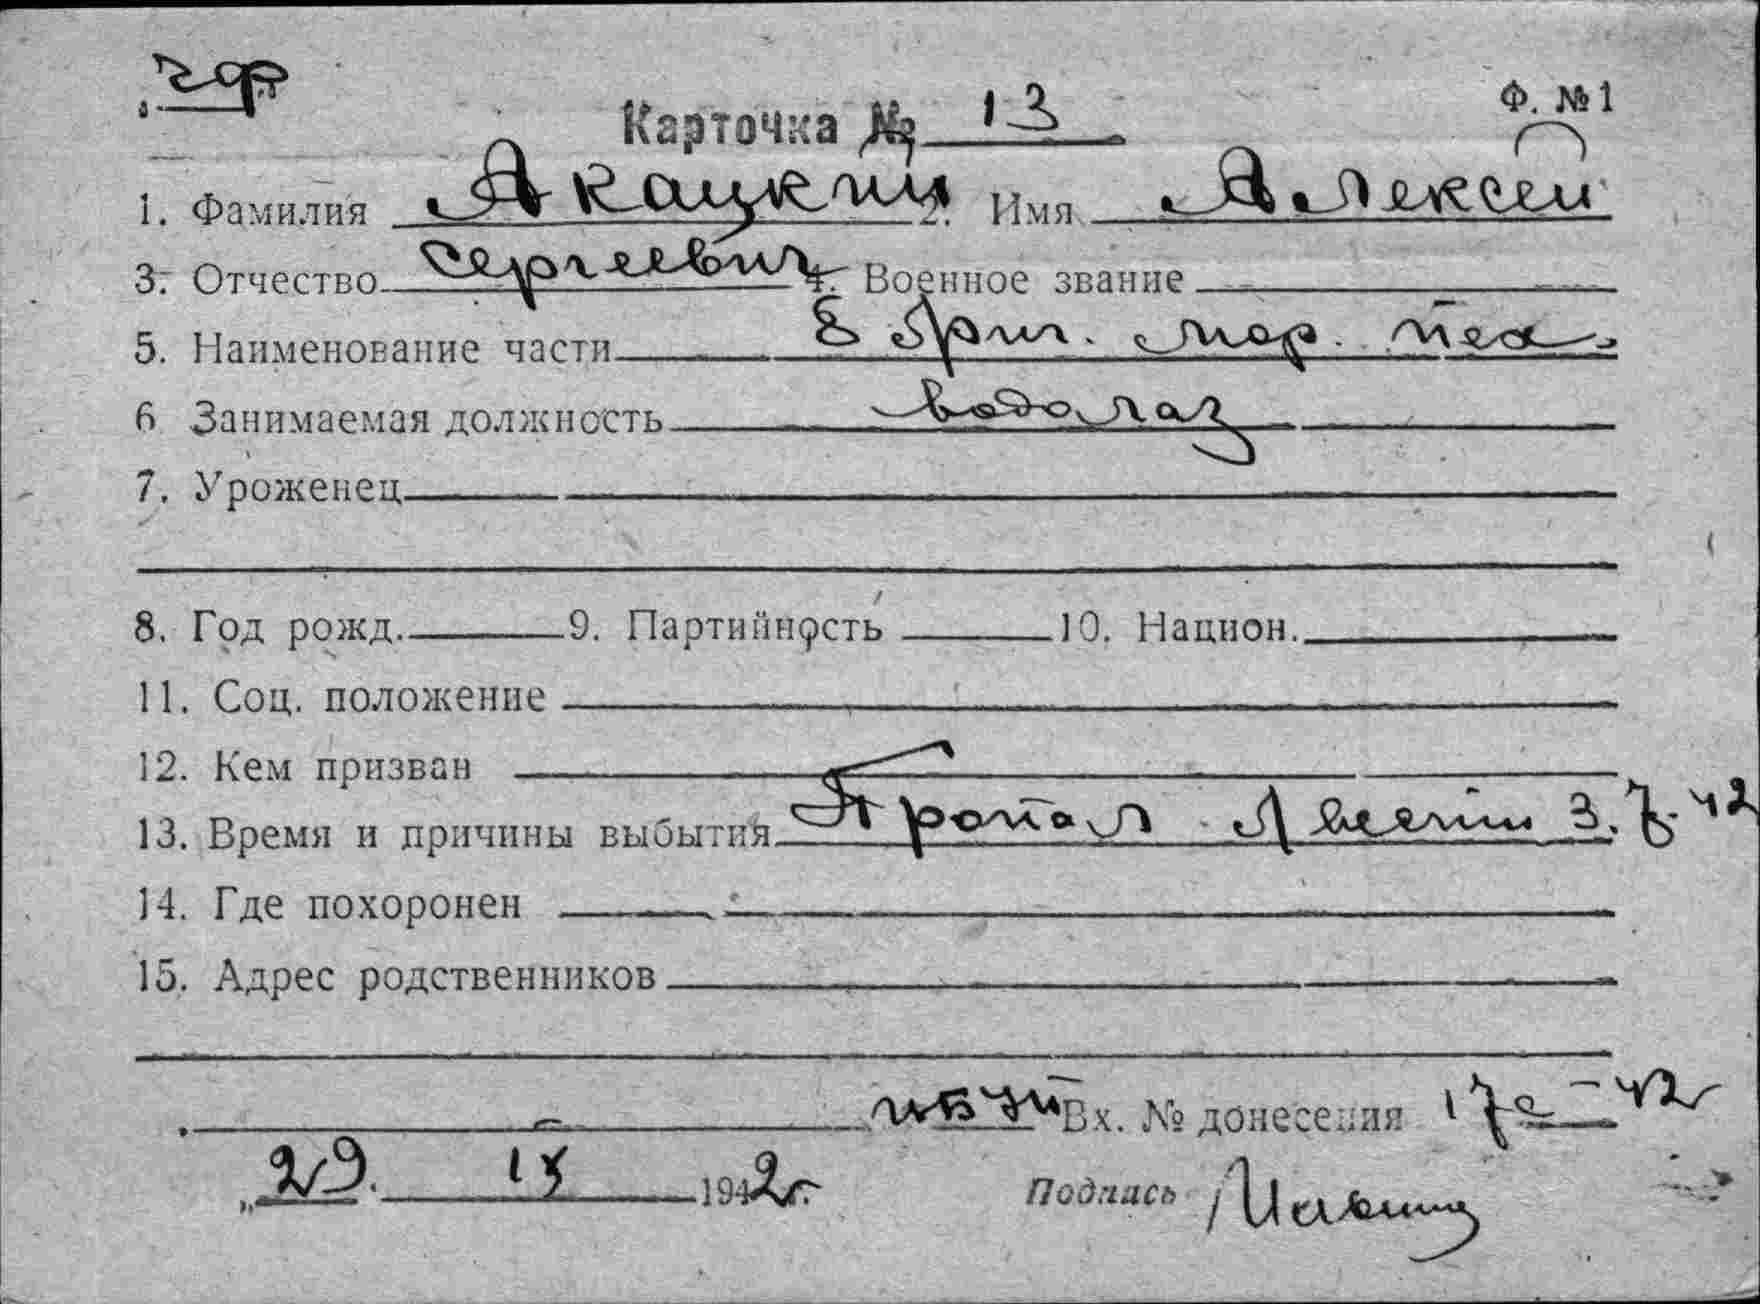 Карточка № 13 Ф. №1
1. Фамилия Якацкий 2. Имя Алексей
3. Отчество Сергеевич 4. Военное звание
5. Наименование части 8 бриг. мор. пех.
6 Занимаемая должность водолаз
7. Уроженец
8. Год рожд. 9. Партийность 10. Национ.
11. Соц. положение
12. Кем призван
13. Время и причины выбытия Пропал без вести 3.7.42
14. Где похоронен
15. Адрес родственников
Вх. № донесения 17с-42
„29. 1942г. Подпись